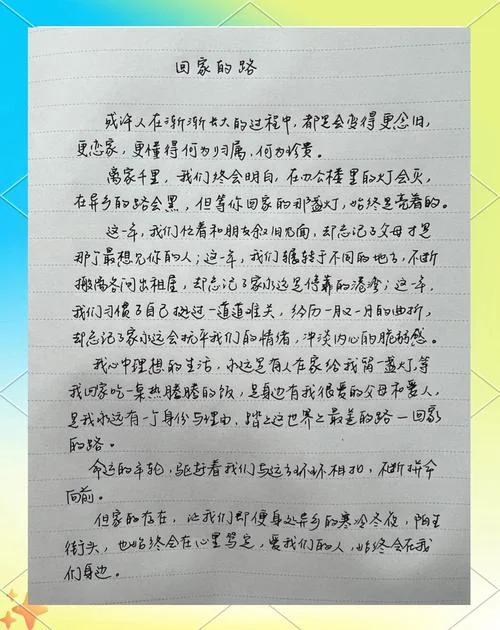 回家的路
或许人在渐渐长大的过程中,都是会变得更念旧,
更恋家,更懂得何为归属,何为珍贵。
离家千里,我们终会明白,在办公楼里的灯会灭,
在异乡的路会黑,但等你回家的那盏灯,始终是亮着的。
这一年,我们忙着和朋友叙旧见面,却忘记了父母才是
那个最想见你的人;这一年,我们辗转于不同的地方,不断
搬离各间出租屋,却忘记了家永远是停靠的港湾;这一年,
我们习惯了自己挨过一道道难关,经历一段又一段的曲折,
却忘记了家永远会抚平我们的情绪,冲淡内心的脆弱感。
我心中理想的生活,永远是有人在家给我留一盏灯,等
我回家吃一桌热腾腾的饭,是身边有我很爱的父母和爱人,
是我永远有一个身份与理由,踏上这世界上最美的路—回家
的路。
命运的车轮,驱赶着我们与远方环环相扣,不断拼命
向前。
但家的存在,让我们即便身处异乡的寒冷冬夜,陌生
街头,也始终会在心里笃定,爱我们的人,始终会在我
们身边。